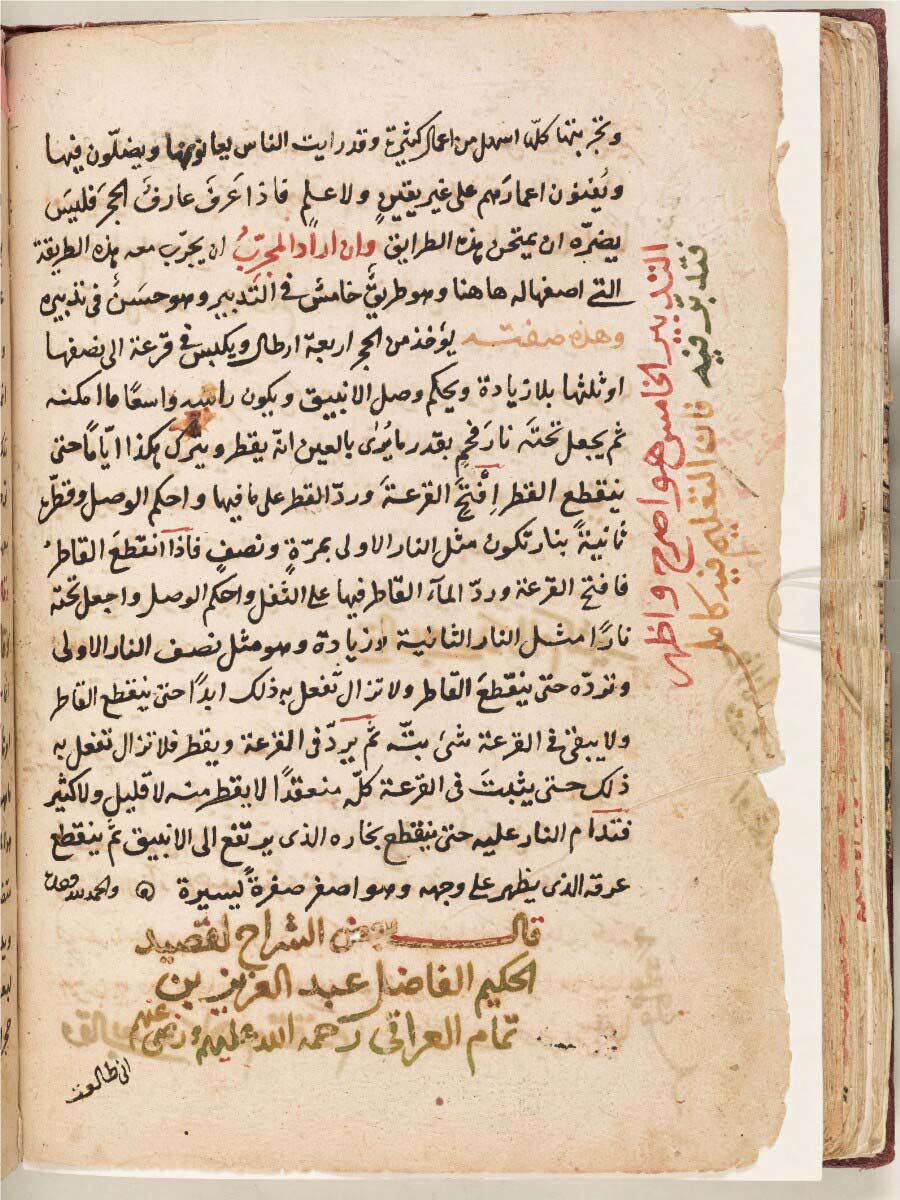 وتجربتها كلّها اسهل من اعمال كثيرة وقد رايت الناس يعانونها ويضلّون فيها
ويُفنون اعمارهم على غير يقينٍ ولا علم فاذا عَرفَ عارفٌ الحجَر فليسَ
يضرّه ان يمتحن بهذه الطرايق وان ارادَ المجرّبُ ان يجرّب معه بهذه الطريقة
التي اصفها له هاهنا وهو طريقٌ خامسٌ في التدبير وهو حسَنٌ في تدبيره
وهذه صفته يؤخذ من الحجر اربعة ارطال ويكلس في قرعة الى نصفها
او ثلثها بلا زيادة ويحكم وصل الانبيق ويكون راسه واسعًا ما امكنه
ثم يجعل تحته نار فحمٍ بقدر ما يُرَى بالعين انّه يقطر ويترك هكذا ايّامًا حتى
ينقطع القطر اِفْتَح القرعةَ وردّ القطر على ما فيها واحكم الوصل وقطّره
ثانيةً بنار تكون مثل النار الاولى بمرّةٍ ونصفٍ فاذا انقطعَ القاطرُ
فافتح القرعة وردّ المآء القاطر فيها على الثفل واحكم الوصل واجعل تحته
نارًا مثل النار الثانية لا زيادة وهو مثل نصف النار الاولى
وتردّه حتى ينقطعَ القاطر ولا تزال تفعل به ذلك ابدًا حتى ينقطع القاطر
ولا يبقى في القرعة شئ بتّه ثم يردّ في القرعة ويقطر فلا تزال تفعل به
ذلك حتى يثبتَ في القرعة كلّه منعقدًا لا يقطر منه لا قليل ولا كثير
فتدام النار عليه حتى ينقطع بخاره الذي يرتفع الى الانبيق ثم ينقطع
عرقه الذي يظهر على وجهه وهو اصفر صفرةً يسيرة والحمد لله وحده
قال بعض الشراح لقصيد
الحكيم الفاضل عبد العزيز بن
تمام العراقي رحمة الله عليه ورضي عنه
التدبير الخامس هو اصرح واظهر
فتدبر فيه فان التعليم فيه كامل